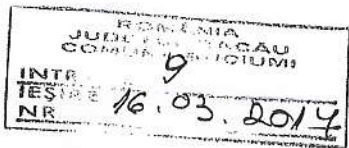 ROMÂNIA
JUDEȚUL BACĂU
COMUNA
INTR 9
IEȘIRE
NR 16.03.2017